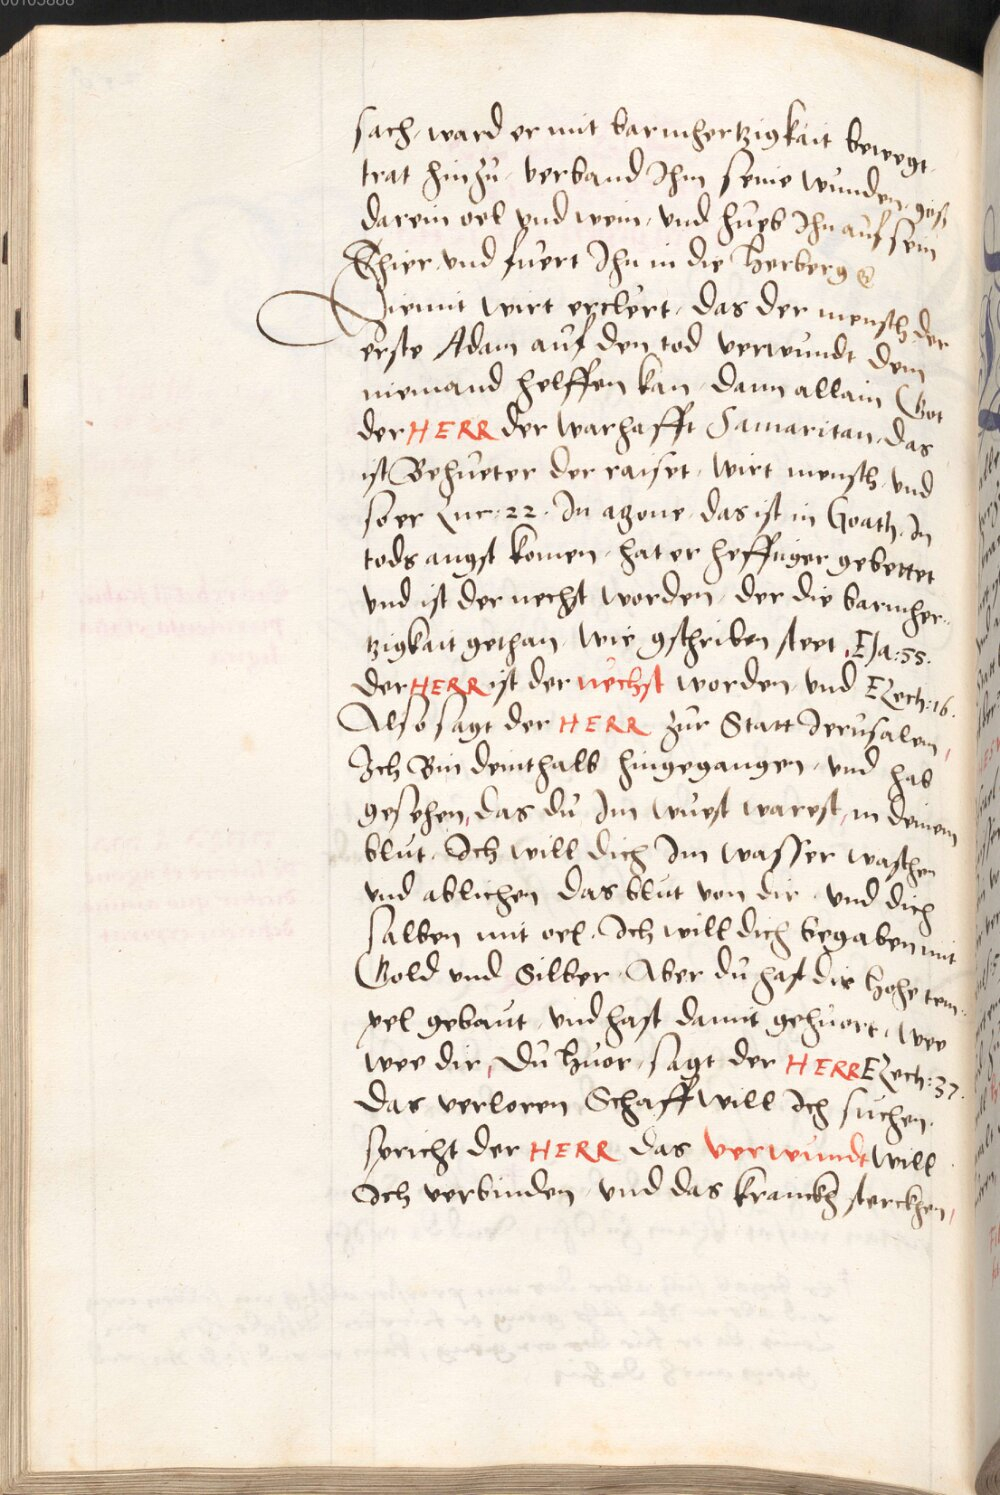 00103888
sach, ward er mit barmhertzigkait bewegt
trat hinzů, verband Ihm seine wunden, gos
darein oel vnd wein, vnd hůeb Ihn auf sein
Thier, vnd fuert Ihn in die Herberg
Hiemit wirt erclert, das der mensch der
erste Adam auf den tod verwundt dem
niemand helffen kan, dann allain Got
der HERR der warhafft Samaritan, das
ist Behueter der raiset, wirt mensch, vnd
so er Luc: 22. In agone, das ist in Goath, In
tods angst komen, hat er hefftiger gebettet
vnd ist der nechst worden, der die barmher-
tzigkait gethan, wie gschriben steet, Esa: 55.
der HERR ist der nechst worden, vnd Ezech: 16.
Also sagt der HERR zůr Statt Jerusalem,
Ich Bin deinthalb hingegangen, vnd hab
gesehen, das dů Im wuest warest, in deinem
blůt, Ich will dich Im wasser waschen
vnd ablichen das blůt von dir, vnd dich
salben mit oel, Ich will dich begaben mit
Gold vnd Silber, Aber dů hast die hohe tem-
pel gebaut, vnd hast damit gehůort, wee
wee dir, Dů Hůor, sagt der HERR Ezech: 37.
das verloren Schaff will Ich sůchen,
spricht der HERR das verwundt will
Ich verbinden, vnd das kranckh sterckhen,